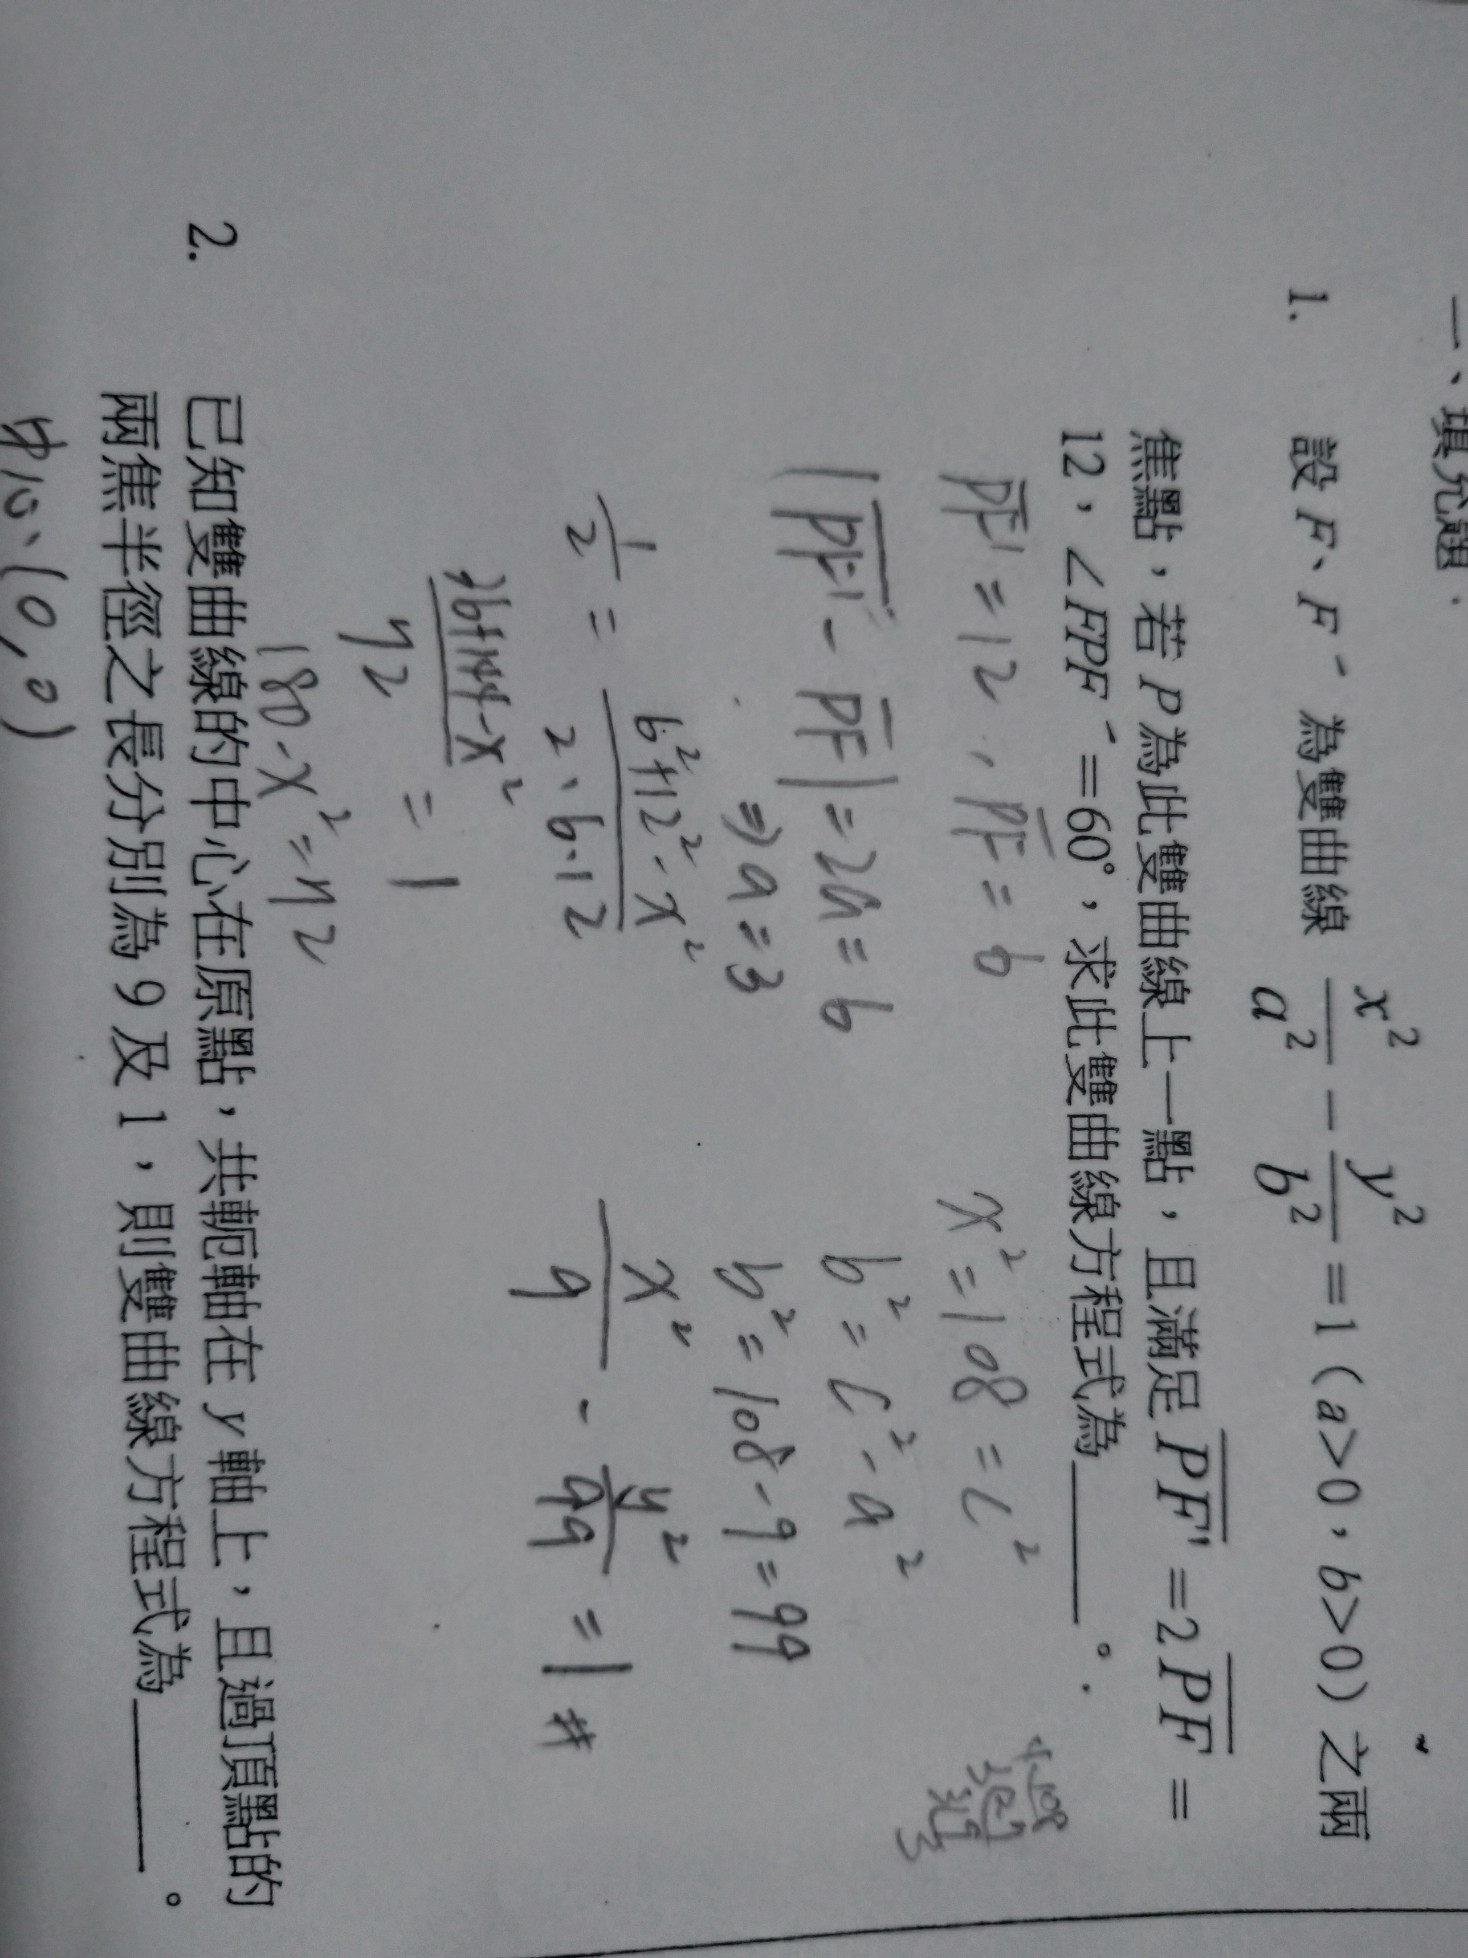 一、填充題.
1. 設 F、F′ 為雙曲線 x²/a² − y²/b² = 1 (a>0, b>0) 之兩
焦點，若 P 為此雙曲線上一點，且滿足 PF' = 2PF =
12，∠FPF′=60°，求此雙曲線方程式為______。
PF' = 12, PF = 6
|PF' - PF| = 2a = 6
⇒ a = 3
1/2 = (6²+12²-x²)/(2·6·12)
(36+144-x²)/72 = 1
180-x²=72
x²=108=c²
b²=c²-a²
b²=108-9=99
x²/9 - y²/99 = 1 #
2. 已知雙曲線的中心在原點，共軛軸在 y 軸上，且過頂點的
兩焦半徑之長分別為 9 及 1，則雙曲線方程式為______。
中心(0,0)